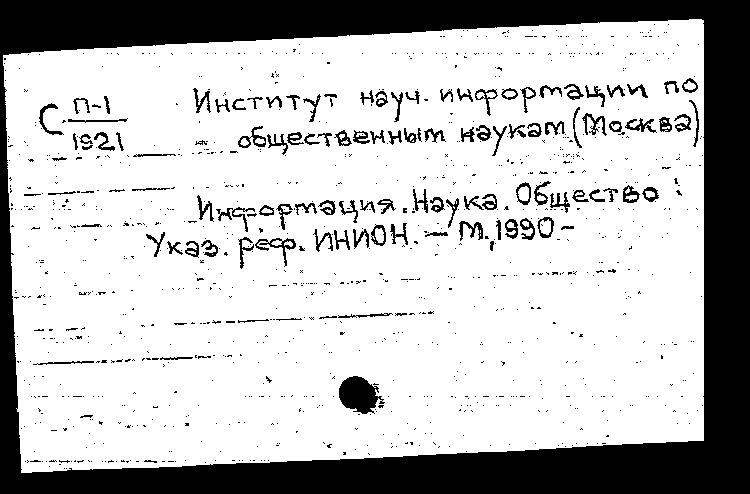 С П-1
1921
Институт науч. информации по
общественным наукам (Москва)
Информация. Наука. Общество :
Указ. реф. ИНИОН. — М., 1990 -